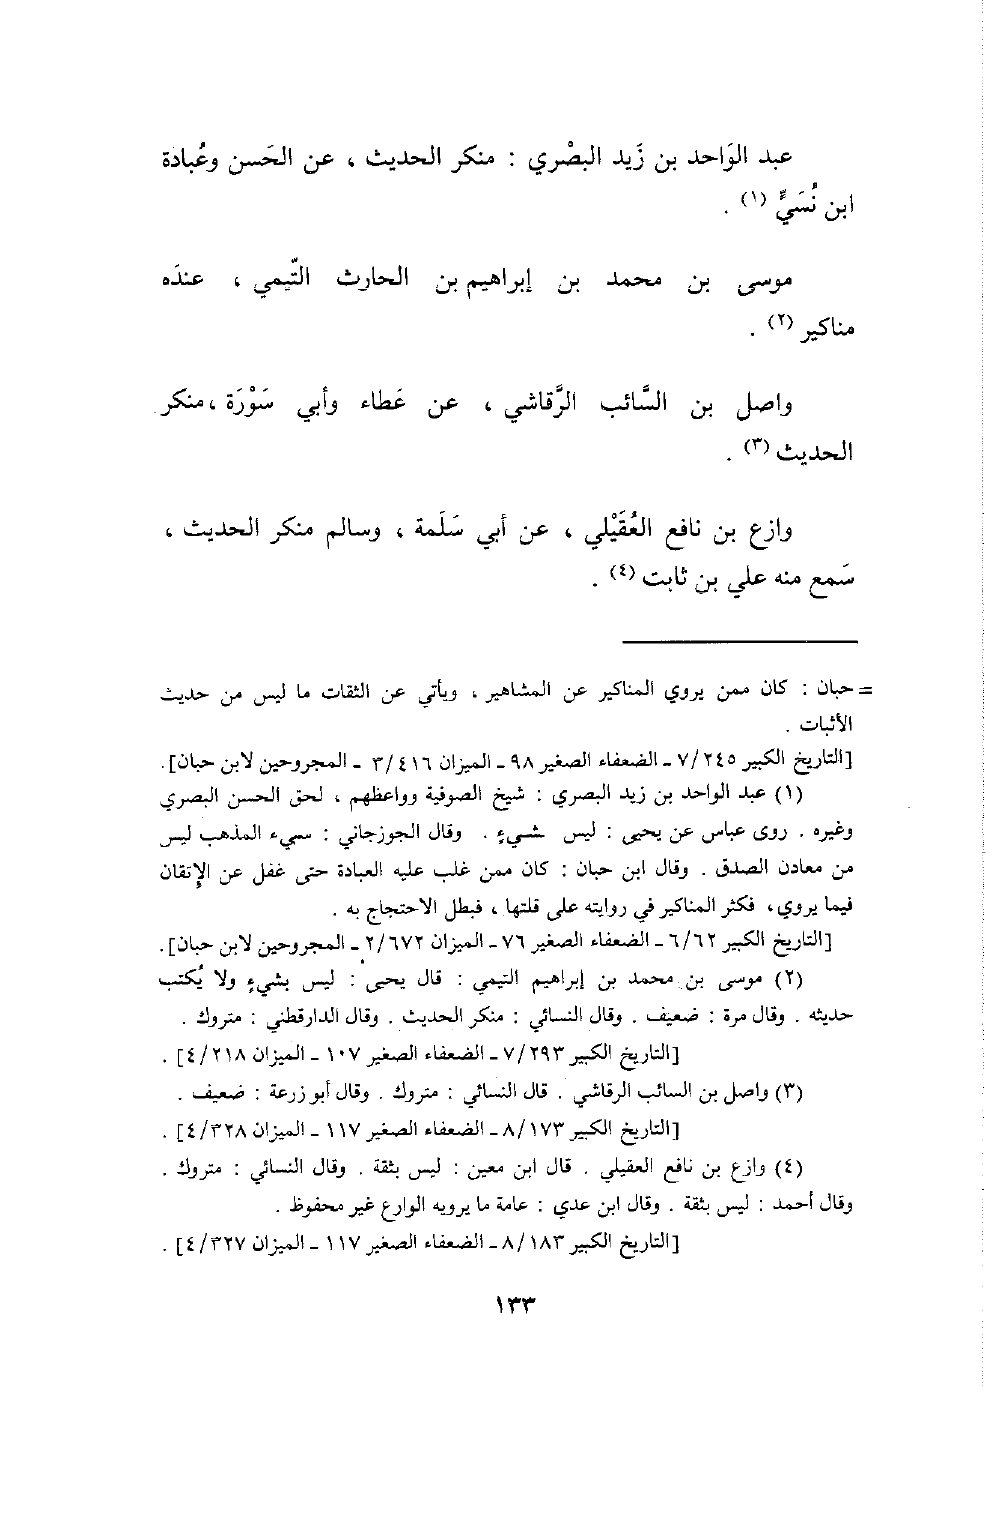 عبد الوَاحد بن زَيد البصْري : منكر الحديث ، عن الحَسن وعُبادة
ابن نُسَيٍّ (١) .
موسى بن محمد بن إبراهيم بن الحارث التّيمي ، عندَه
مناكير (٢) .
واصل بن السَّائب الرَّقاشي ، عن عَطاء وأبي سَوْرَة ، منكر
الحديث (٣) .
وازع بن نافع العُقَيْلي ، عن أبي سَلَمة ، وسالم منكر الحديث ،
سَمع منه علي بن ثابت (٤) .
= حبان : كان ممن يروي المناكير عن المشاهير ، ويأتي عن الثقات ما ليس من حديث
الأثبات .
[التاريخ الكبير ٧/٢٤٥ ـ الضعفاء الصغير ٩٨ ـ الميزان ٣/٤١٦ ـ المجروحين لابن حبان].
(١) عبد الواحد بن زيد البصري : شيخ الصوفية وواعظهم ، لحق الحسن البصري
وغيره . روى عباس عن يحيى : ليس بشيء . وقال الجوزجاني : سيء المذهب ليس
من معادن الصدق . وقال ابن حبان : كان ممن غلب عليه العبادة حتى غفل عن الإتقان
فيما يروي ، فكثر المناكير في روايته على قلتها ، فبطل الاحتجاج به .
[التاريخ الكبير ٦/٦٢ ـ الضعفاء الصغير ٧٦ ـ الميزان ٢/٦٧٢ ـ المجروحين لابن حبان].
(٢) موسى بن محمد بن إبراهيم التيمي : قال يحيى : ليس بشيء ولا يُكتب
حديثه . وقال مرة : ضعيف . وقال النسائي : منكر الحديث . وقال الدارقطني : متروك .
[التاريخ الكبير ٧/٢٩٣ ـ الضعفاء الصغير ١٠٧ ـ الميزان ٤/٢١٨] .
(٣) واصل بن السائب الرقاشي . قال النسائي : متروك . وقال أبو زرعة : ضعيف .
[التاريخ الكبير ٨/١٧٣ ـ الضعفاء الصغير ١١٧ ـ الميزان ٤/٣٢٨] .
(٤) وازع بن نافع العقيلي . قال ابن معين : ليس بثقة . وقال النسائي : متروك .
وقال أحمد : ليس بثقة . وقال ابن عدي : عامة ما يرويه الوارع غير محفوظ .
[التاريخ الكبير ٨/١٨٣ ـ الضعفاء الصغير ١١٧ ـ الميزان ٤/٣٢٧] .
١٣٣